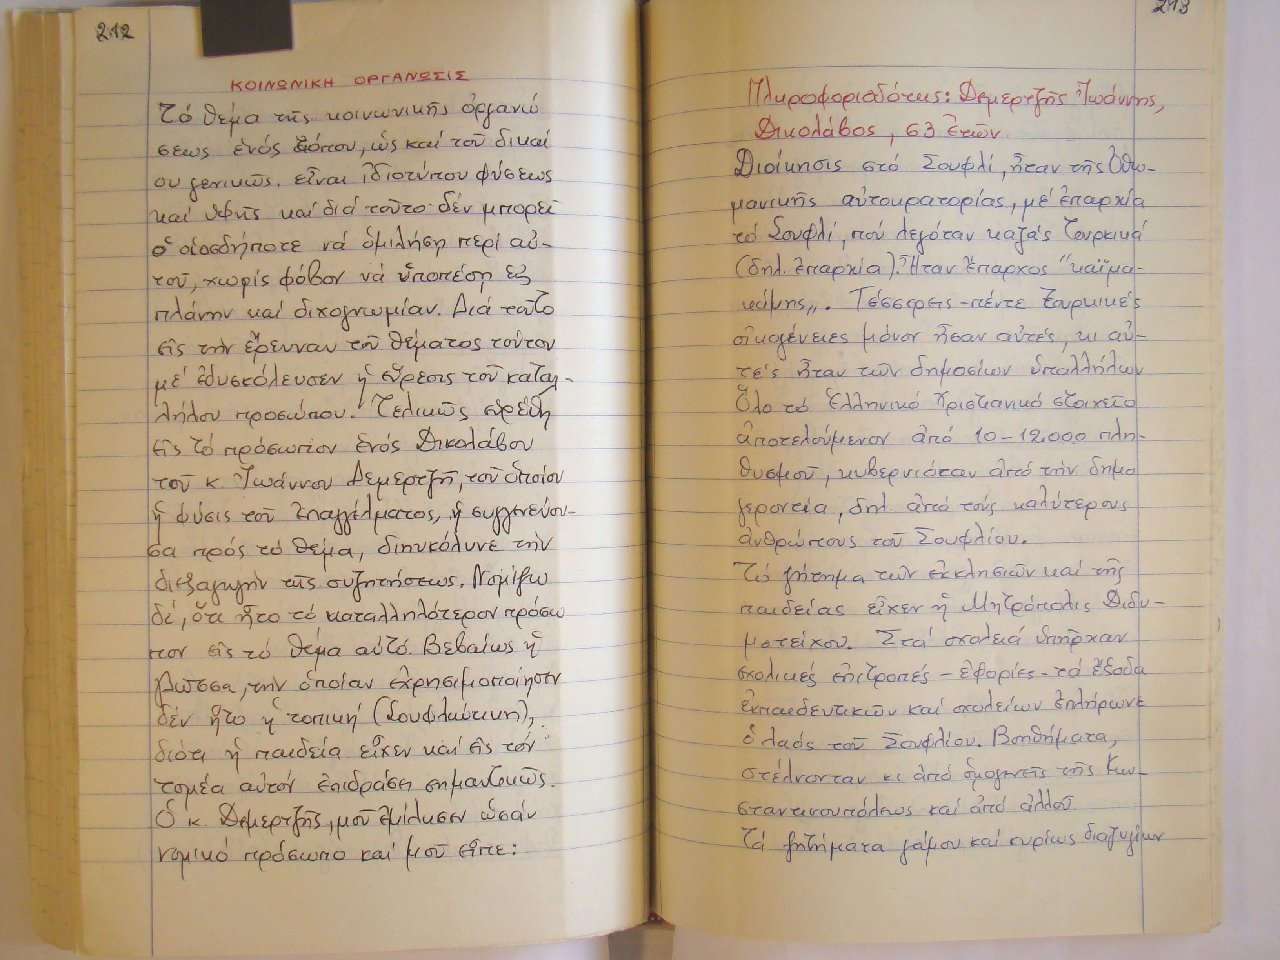 212
ΚΟΙΝΩΝΙΚΗ ΟΡΓΑΝΩΣΙΣ
Τό θέμα τῆς κοινωνικῆς ὀργανώ
σεως ἑνός τόπου, ὡς καί τοῦ δικαί
ου γενικῶς, εἶναι ἰδιοτύπου φύσεως
καί ὑφῆς καί διά τοῦτο δέν μπορεῖ
ὁ οἱοσδήποτε νά ὁμιλήση περί αὐ-
τοῦ, χωρίς φόβον νά ὑποπέση εἰς
πλάνην καί διχογνωμίαν. Διά τοῦτο
εἰς τήν ἔρευναν τοῦ θέματος τούτου
μέ ἐδυσκόλευσεν ἡ εὕρεσις τοῦ καταλ-
λήλου προσώπου. Τελικῶς εὑρέθη
εἰς τό πρόσωπον ἑνός Δικολάβου
τοῦ κ. Ἰωάννου Δεμερτζῆ, τοῦ ὁποίου
ἡ φύσις τοῦ ἐπαγγέλματος, ἡ συγγενεύου-
σα πρός τό θέμα, διηυκόλυνε τήν
διεξαγωγήν τῆς συζητήσεως. Νομίζω
δέ, ὅτι ἦτο τό καταλληλότερον πρόσω
πον εἰς τό θέμα αὐτό. Βεβαίως ἡ
γλῶσσα, τήν ὁποίαν ἐχρησιμοποίησεν
δέν ἦτο ἡ τοπική (Σουφλιώτικη),
διότι ἡ παιδεία εἶχεν καί εἰς τόν
τομέα αὐτόν ἐπιδράσει σημαντικῶς.
Ὁ κ. Δεμερτζῆς, μοῦ ἐμίλησεν ὡσάν
νομικό πρόσωπο καί μοῦ εἶπε:
213
Πληροφοριοδότης: Δεμερτζῆς Ἰωάννης,
Δικολάβος, 63 ἐτῶν
Διοίκησις στό Σουφλί, ἦταν τῆς Ὀθω-
μανικῆς αὐτοκρατορίας, μέ ἐπαρχία
τό Σουφλί, πού λεγόταν καζάς Τουρκικά
(δηλ. ἐπαρχία). Ἦταν ἔπαρχος "καϊμα-
κάμης„. Τέσσερεις-πέντε Τουρκικές
οἰκογένειες μόνον ἦσαν αὐτές, κι αὐ-
τές ἦταν τῶν δημοσίων ὑπαλλήλων
Ὅλο τό Ἑλληνικό Χριστιανικό στοιχεῖο
ἀποτελούμενον ἀπό 10-12.000 πλη-
θυσμοῦ, κυβερνιόταν ἀπό τήν δημο
γεροντία, δηλ ἀπό τούς καλύτερους
ἀνθρώπους τοῦ Σουφλίου.
Τό ζήτημα τῶν ἐκκλησιῶν καί τῆς
παιδείας εἶχεν ἡ Μητρόπολις Διδυ-
μοτείχου. Στά σχολειά ὑπῆρχαν
σχολικές ἐπιτροπές - ἐφορίες - τά ἔξοδα
ἐκπαιδευτικῶν καί σχολείων ἐπλήρωνε
ὁ λαός τοῦ Σουφλίου. Βοηθήματα,
στέλνονταν κι ἀπό ὁμογενεῖς τῆς Κων-
σταντινουπόλεως καί ἀπό ἀλλοῦ
Τά ζητήματα γάμου καί κυρίως διαζυγίων